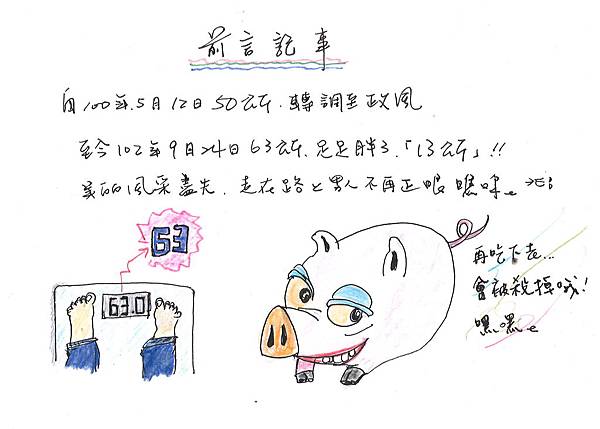 前言記事
自100年.5月12日50公斤.轉調至政風
至今102年9月24日63公斤.足足胖了.「13公斤」!!
美的風采盡失.走在路上男人不再正眼瞧咪。
63
63.0
再吃下去...
會被殺掉哦!
嘿嘿。